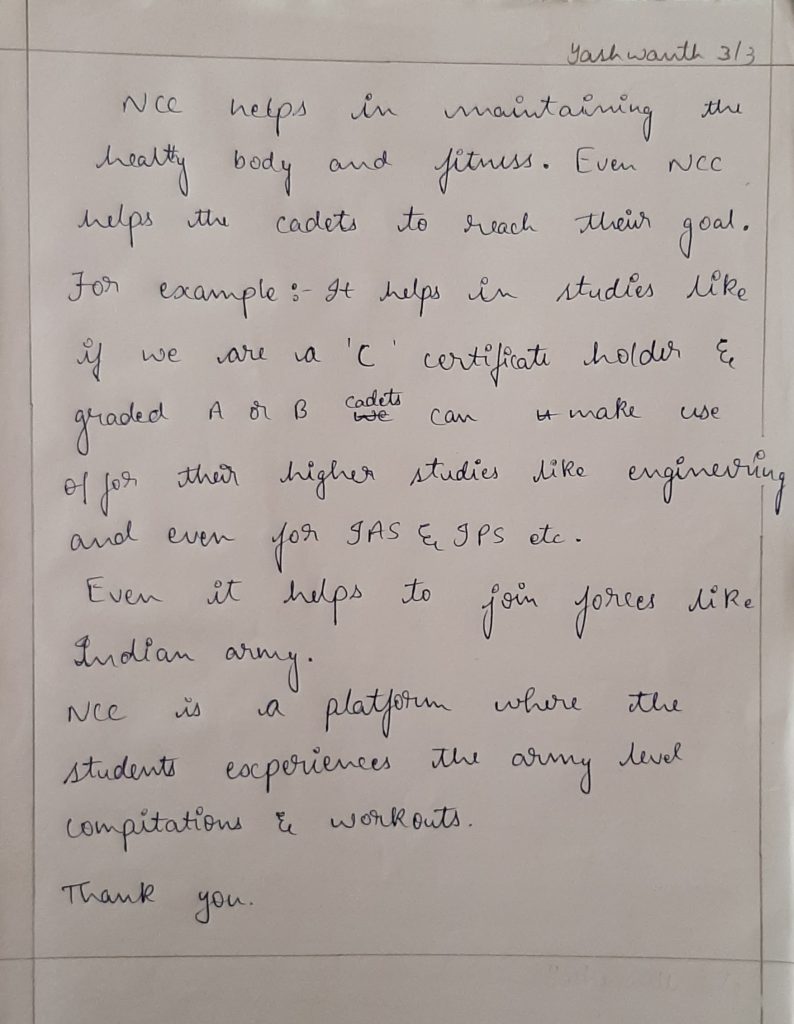 Yashwanth 3/3
NCC helps in maintaining the
healty body and fitness. Even NCC
helps the cadets to reach their goal.
For example :- It helps in studies like
if we are a 'C' certificate holder &
graded A or B cadets can make use
of for their higher studies like engineering
and even for IAS & IPS etc.
Even it helps to join forces like
Indian army.
NCC is a platform where the
students experiences the army level
compitations & workouts.
Thank you.